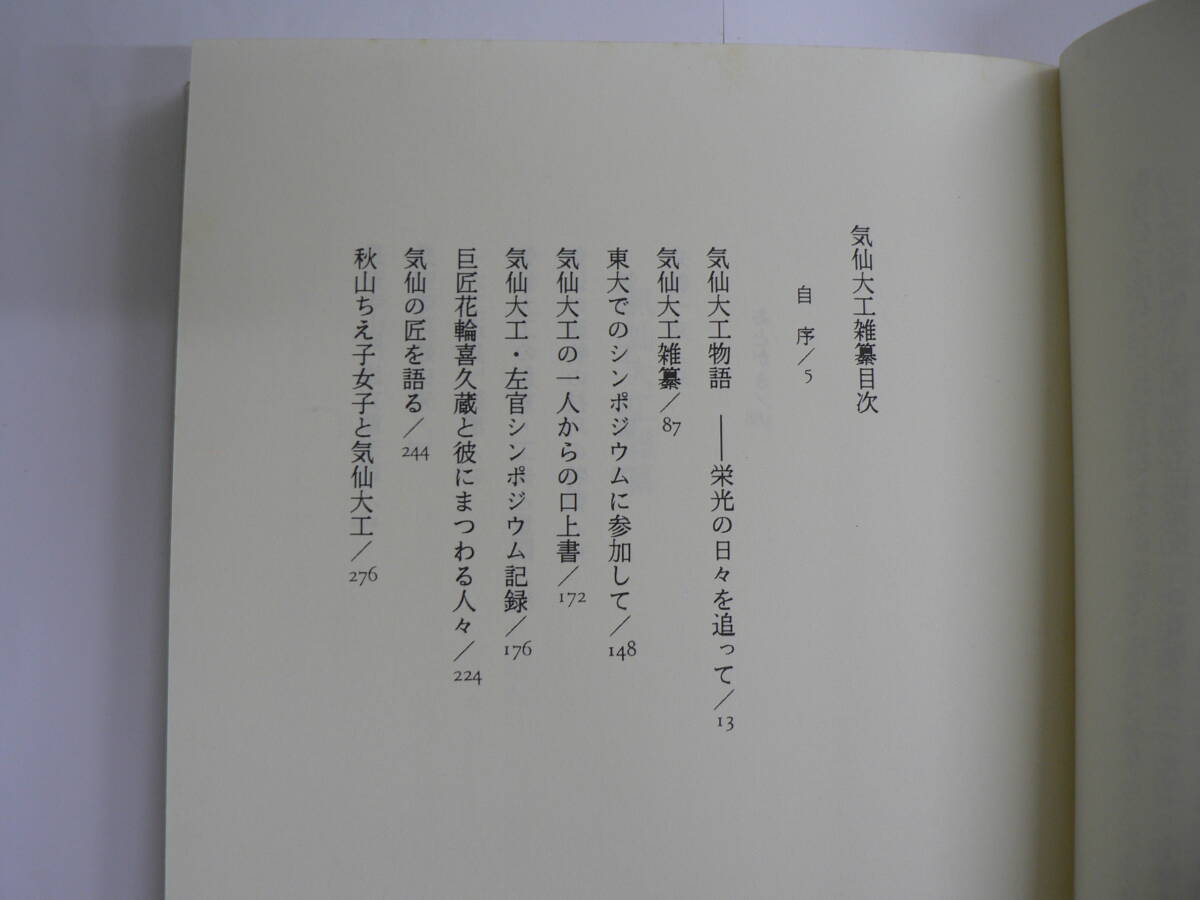 気仙大工雑纂目次
自序/5
気仙大工物語 ――栄光の日々を追って/13
気仙大工雑纂/87
東大でのシンポジウムに参加して/148
気仙大工の一人からの口上書/172
気仙大工・左官シンポジウム記録/176
巨匠花輪喜久蔵と彼にまつわる人々/224
気仙の匠を語る/244
秋山ちえ子女子と気仙大工/276